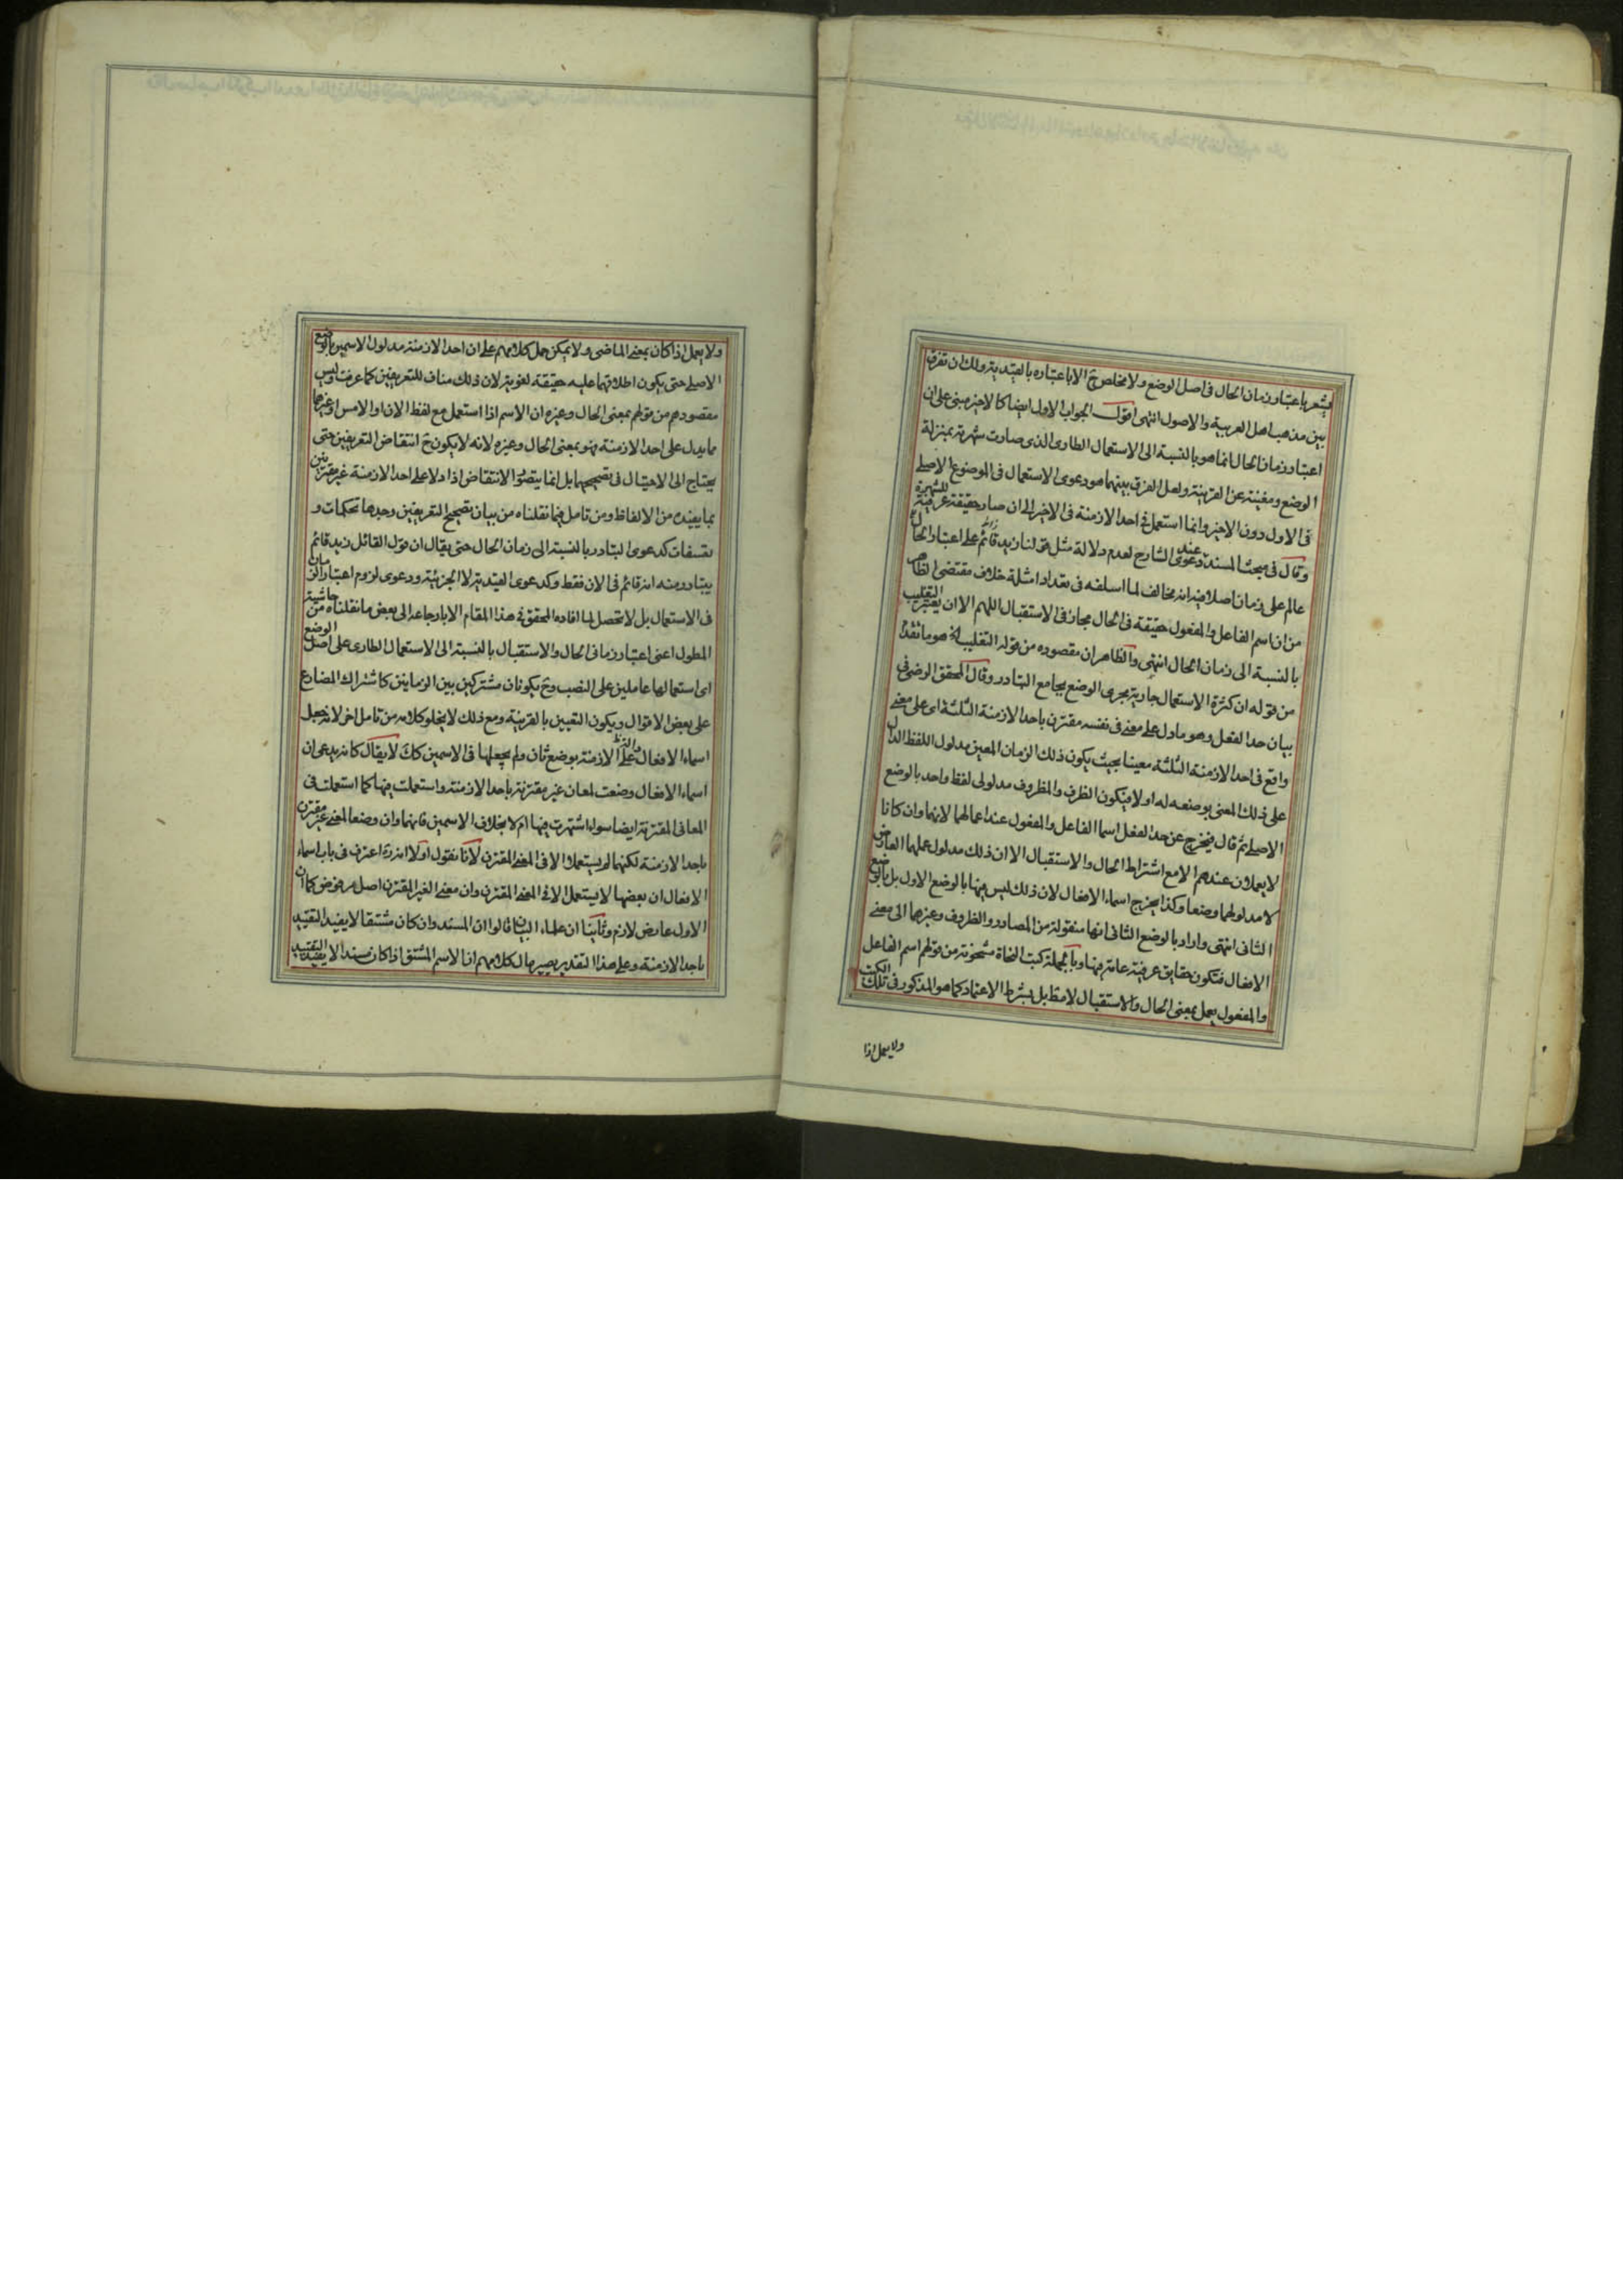 يشعر باعتبار زمان الحال فى اصل الوضع ولا مخلص ح الا باعتباره بالقيدية ولك ان تفرق
بين مذهب اهل العربية والاصول انتهى اقول الجواب الاول ايضا كالاخير مبنى على ان
اعتبار زمان الحال انما هو بالنسبة الى الاستعمال الطارى الذى صارت شهرته بمنزلة
الوضع ومغنية عن القرينة ولعل الفرق بينهما هو دعوى الاستعمال فى الموضوع الاصلى
فى الاول دون الاخير وانما استعمل فى احد الازمنة فى الاخير الى ان صار حقيقة عرفية للشهرة
وقال فى مبحث المسند عند دعوى الشارح لعدم دلالة مثل قولنا زيد قائم على اعتبار الحال
عالم على زمان اصلا فيه انه مخالف لما اسلفه فى تعداد امثلة خلاف مقتضى الظاهر
من ان اسم الفاعل والمفعول حقيقة فى الحال مجاز فى الاستقبال اللهم الا ان يعتبر التغليب
بالنسبة الى زمان الحال انتهى والظاهر ان مقصوده من قوله التغليب الخ هو ما تقدم
من قوله ان كثرة الاستعمال جارية مجرى الوضع بجامع التبادر وقال المحقق الرضى فى
بيان حد الفعل وهو ما دل على معنى فى نفسه مقترن باحد الازمنة الثلثة اى على معنى
واقع فى احد الازمنة الثلثة معينا بحيث يكون ذلك الزمان المعين مدلول اللفظ الدال
على ذلك المعنى بوضعه له اولا فيكون الظرف والمظروف مدلولى لفظ واحد بالوضع
الاصلى ثم قال فيخرج عن حد الفعل اسما الفاعل والمفعول عند اعمالهما لانهما وان كانا
لا يعملان عندهم الا مع اشتراط الحال والاستقبال الا ان ذلك مدلول عملهما العارض
لا مدلولهما وضعا وكذا يخرج اسماء الافعال لان ذلك ليس فيها بالوضع الاول بل بالوضع
الثانى انتهى واراد بالوضع الثانى انها منقولة من المصادر والظروف وغيرهما الى معنى
الافعال فتكون حقايق عرفية عامة فيها وبالجملة كتب النحاة مشحونة من قولهم اسم الفاعل
والمفعول يعمل بمعنى الحال والاستقبال لا مط بل بشرط الاعتماد كما هو المذكور فى تلك الكتب
ولا يعمل اذا
ولا يعمل اذا كان بمعنى الماضى ولا يمكن حمل كلامهم على ان احد الازمنة مدلول الاسمين بالوضع
الاصلى حتى يكون اطلاقهما عليه حقيقة لغوية لان ذلك مناف للتعريفين كما عرفت وليس
مقصودهم من قولهم بمعنى الحال وغيره ان الاسم اذا استعمل مع لفظ الان او الامس او غيرها
مما يدل على احد الازمنة فهو بمعنى الحال وغيره لانه لا يكون ح انتقاض التعريفين حتى
يحتاج الى الاحتيال فى تصحيحهما بل انما يتصور الانتقاض اذا دلا على احد الازمنة غير مقترنين
بما يفيده من الالفاظ ومن تامل فيما نقلناه من بيان تصحيح التعريفين وجدها تحكمات و
تعسفات كدعوى التبادر بالنسبة الى زمان الحال حتى يقال ان قول القائل زيد قائم
يتبادر منه انه قائم فى الان فقط وكدعوى القيدية لا الجزئية ودعوى لزوم اعتبار الزمان
فى الاستعمال بل لا محصل لما افاده المحقق فى هذا المقام الا بارجاعه الى بعض ما نقلناه من حاشية
المطول اعنى اعتبار زمانى الحال والاستقبال بالنسبة الى الاستعمال الطارى على اصل الوضع
اى استعمالها عاملين على النصب وح يكونان مشتركين بين الزمانين كاشتراك المضارع
على بعض الاقوال ويكون التعيين بالقرينة ومع ذلك لا يخلو كلامه من تامل اخر لانه جعل
اسماء الافعال دالة على الازمنة بوضع ثان ولم يجعلها فى الاسمين كك لا يقال كانه يدعى ان
اسماء الافعال وضعت لمعان غير مقترنة باحد الازمنة واستعملت فيها كما استعملت فى
المعانى المقترنة ايضا سواء اشتهرت فيها ام لا بخلاف الاسمين فانهما وان وضعا لمعنى غير مقترن
باحد الازمنة لكنهما لم يستعملا الا فى المعنى المقترن لانا نقول اولا انه قد اعترف فى باب اسماء
الافعال ان بعضها لا يستعمل الا فى المعنى المقترن وان معنى الغير المقترن اصل مرفوض كما ان
الاول عارض لازم وثانيا ان علماء البيان قالوا ان المسند وان كان مشتقا لا يفيد التقييد
باحد الازمنة وعلى هذا التقدير يصير مآل كلامهم ان الاسم المشتق اذا كان مسندا لا يفيد التقييد